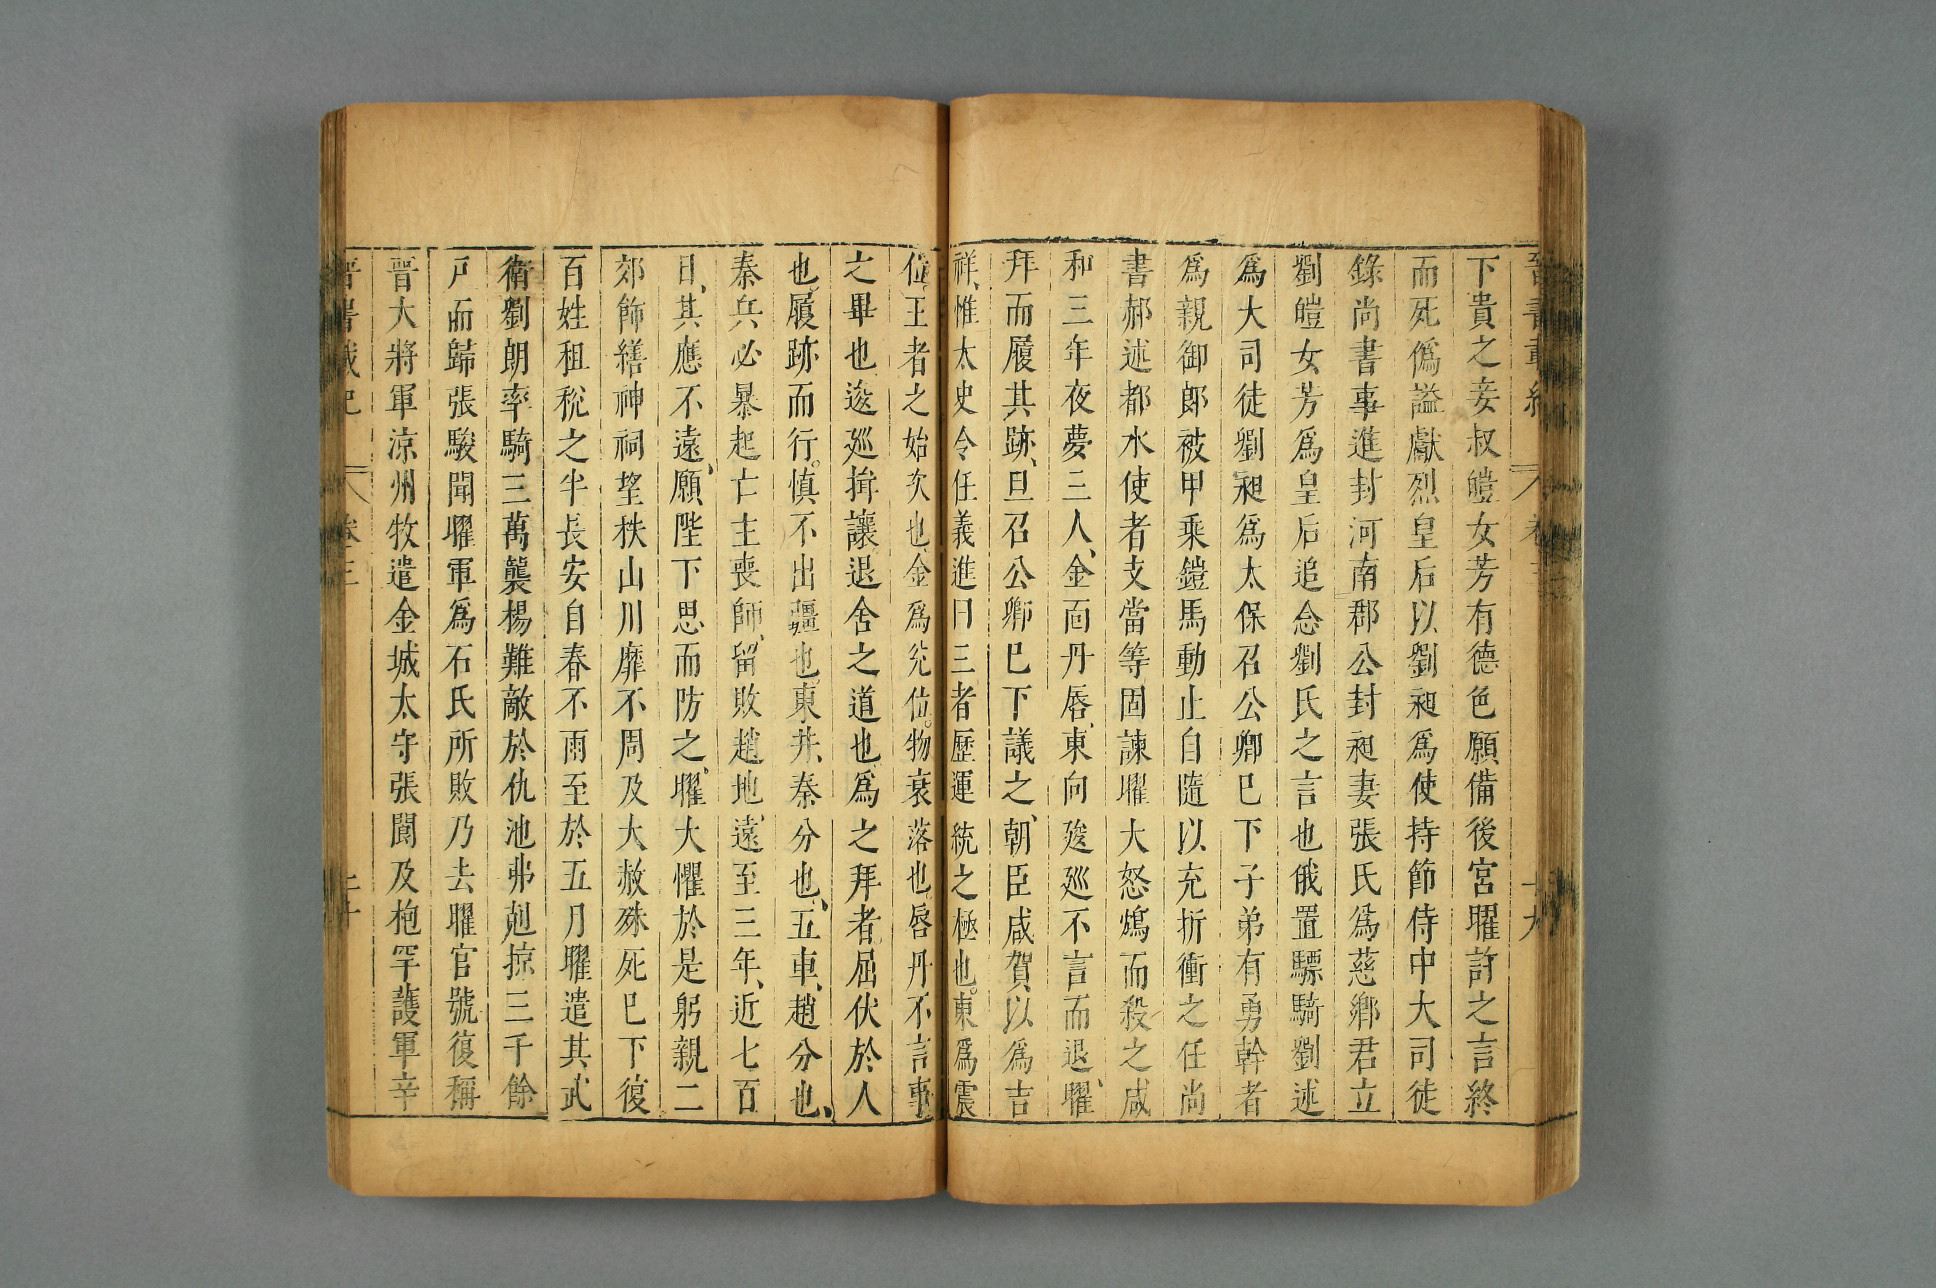 下貴之妾叔皚女芳有德色願備後宮曜許之言終
而死僞謚獻烈皇后以劉昶爲使持節侍中大司徒
錄尚書事進封河南郡公封昶妻張氏爲慈鄉君立
劉皚女芳爲皇后追念劉氏之言也俄置驃騎劉述
爲大司徒劉昶爲太保召公卿巳下子弟有勇幹者
爲親御郎被甲乘鎧馬動止自隨以充折衝之任尚
書郝述都水使者支當等固諫曜大怒鴆而殺之咸
和三年夜夢三人、金面丹唇、東向逡廵不言而退、曜
拜而履其跡、旦召公卿巳下議之、朝臣咸賀、以爲吉
祥、惟太史令任義進曰三者歷運統之極也。東爲震
位、王者之始次也、金爲兌位。物衰落也。唇丹不言事
之畢也逡廵揖讓退舍之道也、爲之拜者、屈伏於人
也。履跡而行。慎不出疆也。東井、秦分也、五車、趙分也、
秦兵必暴起亡主喪師、留敗趙地、遠至三年、近七百
日、其應不遠、願陛下思而防之、曜大懼於是躬親二
郊飾繕神祠望秩山川靡不周及大赦殊死巳下復
百姓租稅之半長安自春不雨至於五月曜遣其武
衛劉朗率騎三萬襲楊難敵於仇池弗剋掠三千餘
戸而歸張駿聞曜軍爲石氏所敗乃去曜官號復稱
晉大將軍涼州牧遣金城太守張閬及枹罕護軍辛
卷三